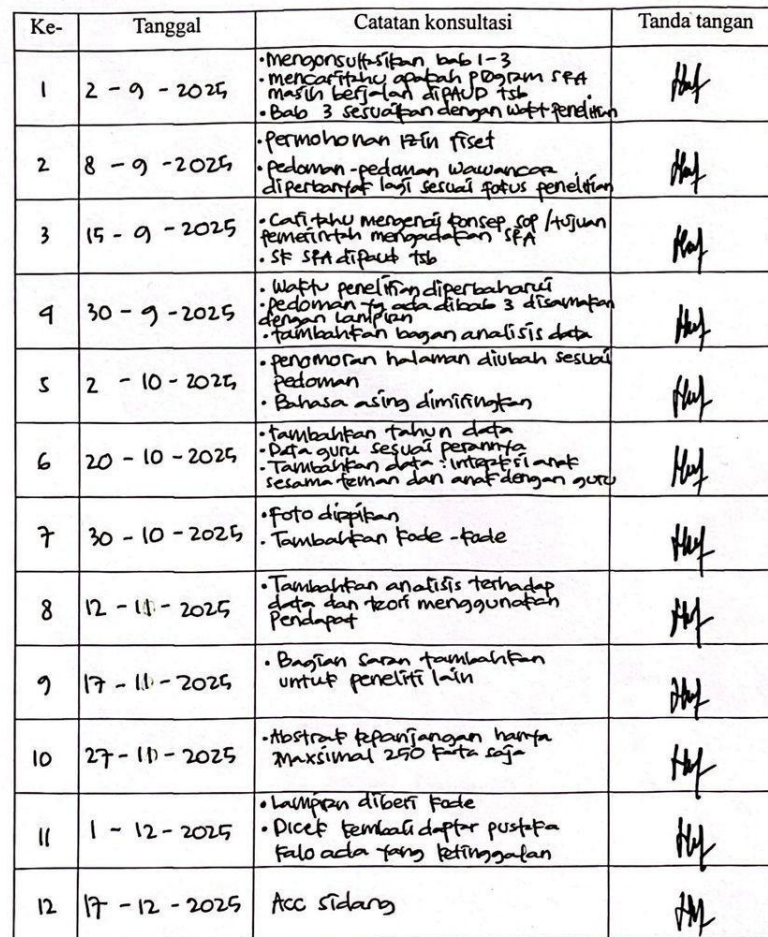 Ke- Tanggal Catatan konsultasi Tanda tangan
1 2 - 9 - 2025
• mengonsultasikan bab 1-3
• mencaritahu apakah program SRA
masih berjalan diPAUD tsb
• Bab 3 sesuaikan dengan waktu penelitian
2 8 - 9 - 2025
• permohonan izin riset
• pedoman-pedoman wawancar
diperbanyak lagi sesuai fokus penelitian
3 15 - 9 - 2025
• Cari tahu mengenai konsep sop /tujuan
pemerintah mengadakan SRA
• SK SRA dipaud tsb
4 30 - 9 - 2025
• Waktu penelitian diperbaharui
• pedoman yg ada dibab 3 disamakan
dengan Lampiran
• tambahkan bagan analisis data
5 2 - 10 - 2025
• penomoran halaman diubah sesuai
pedoman
• Bahasa asing dimiringkan
6 20 - 10 - 2025
• tambahkan tahun data
• Data guru sesuai perannya
• Tambahkan data : interaksi anak
sesama teman dan anak dengan guru
7 30 - 10 - 2025
• Foto dirapikan
• Tambahkan kode -kode
8 12 - 11 - 2025
• Tambahkan analisis terhadap
data dan teori menggunakan
Pendapat
9 17 - 11 - 2025
• Bagian saran tambahkan
untuk peneliti lain
10 27 - 11 - 2025
• Abstrak kepanjangan hanya
Maxsimal 250 kata saja
11 1 - 12 - 2025
• Lampiran diberi kode
• Dicek kembali daptar pustaka
kalo ada yang ketinggalan
12 17 - 12 - 2025 Acc sidang